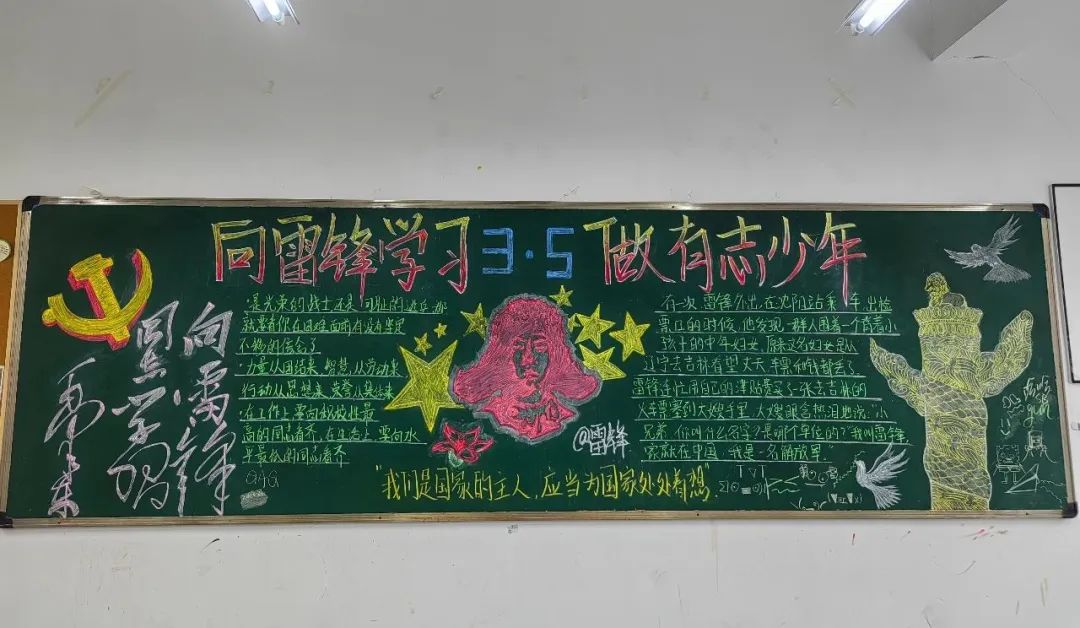 向雷锋学习 3·5 做有志少年
向雷锋
同志学习
毛泽东
是光荣的战士还是
就要看你在困难面前有没有坚定
不移的信念了
力量从团结来，智慧从劳动来
行动从思想来，荣誉从集体来
在工作上，要向积极性最
高的同志看齐，在生活上，要向水
平最低的同志看齐
@雷锋
"我们是国家的主人，应当为国家处处着想"
有一次，雷锋外出，在沈阳站乘车，出检
票口的时候，他发现一群人围着一个背着小
孩子的中年妇女，原来这名妇女是从
辽宁去吉林看望丈夫，车票和钱都丢了
雷锋连忙用自己的津贴费买了一张去吉林的
火车票塞到大嫂手里，大嫂眼含热泪地说："小
兄弟，你叫什么名字？是哪个单位的？"我叫雷锋，
家就在中国，我是一名解放军"